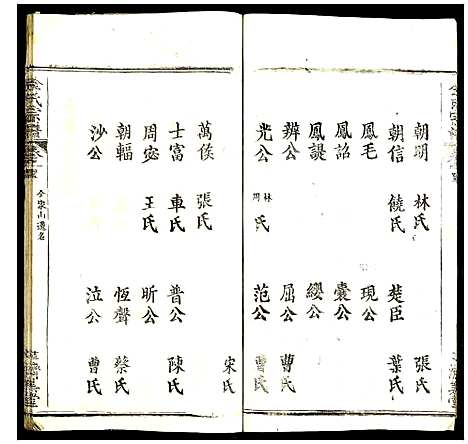 朝明 林氏 張氏
朝信 饒氏 楚臣 葉氏
鳳毛 現公
鳳詔 囊公
鳳諟 纓公
辨公 屈公 曹氏
光公 林 周 氏 范公 曹氏
宋氏
萬侯 張氏
士富 車氏 普公 陳氏
周宓 王氏 昕公
朝輻 恆聲 蔡氏
沙公 泣公 曹氏
余氏宗譜
今眾山遺名